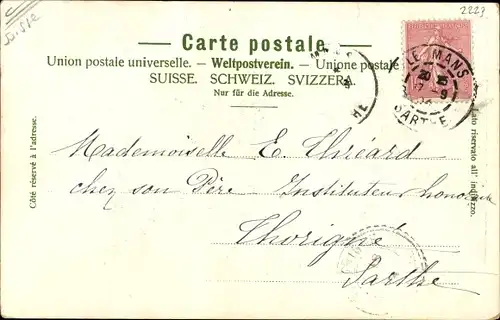 Suisse
2223
Carte postale.
Union postale universelle. — Weltpostverein. — Unione postale
SUISSE. SCHWEIZ. SVIZZERA.
Nur für die Adresse.
LE MANS
SARTHE
Côté réservé à l'adresse.
Lato riservato all' indirizzo.
Mademoiselle E. Thiéard
chez son Père Instituteur honoraire
Thorigné
Sarthe